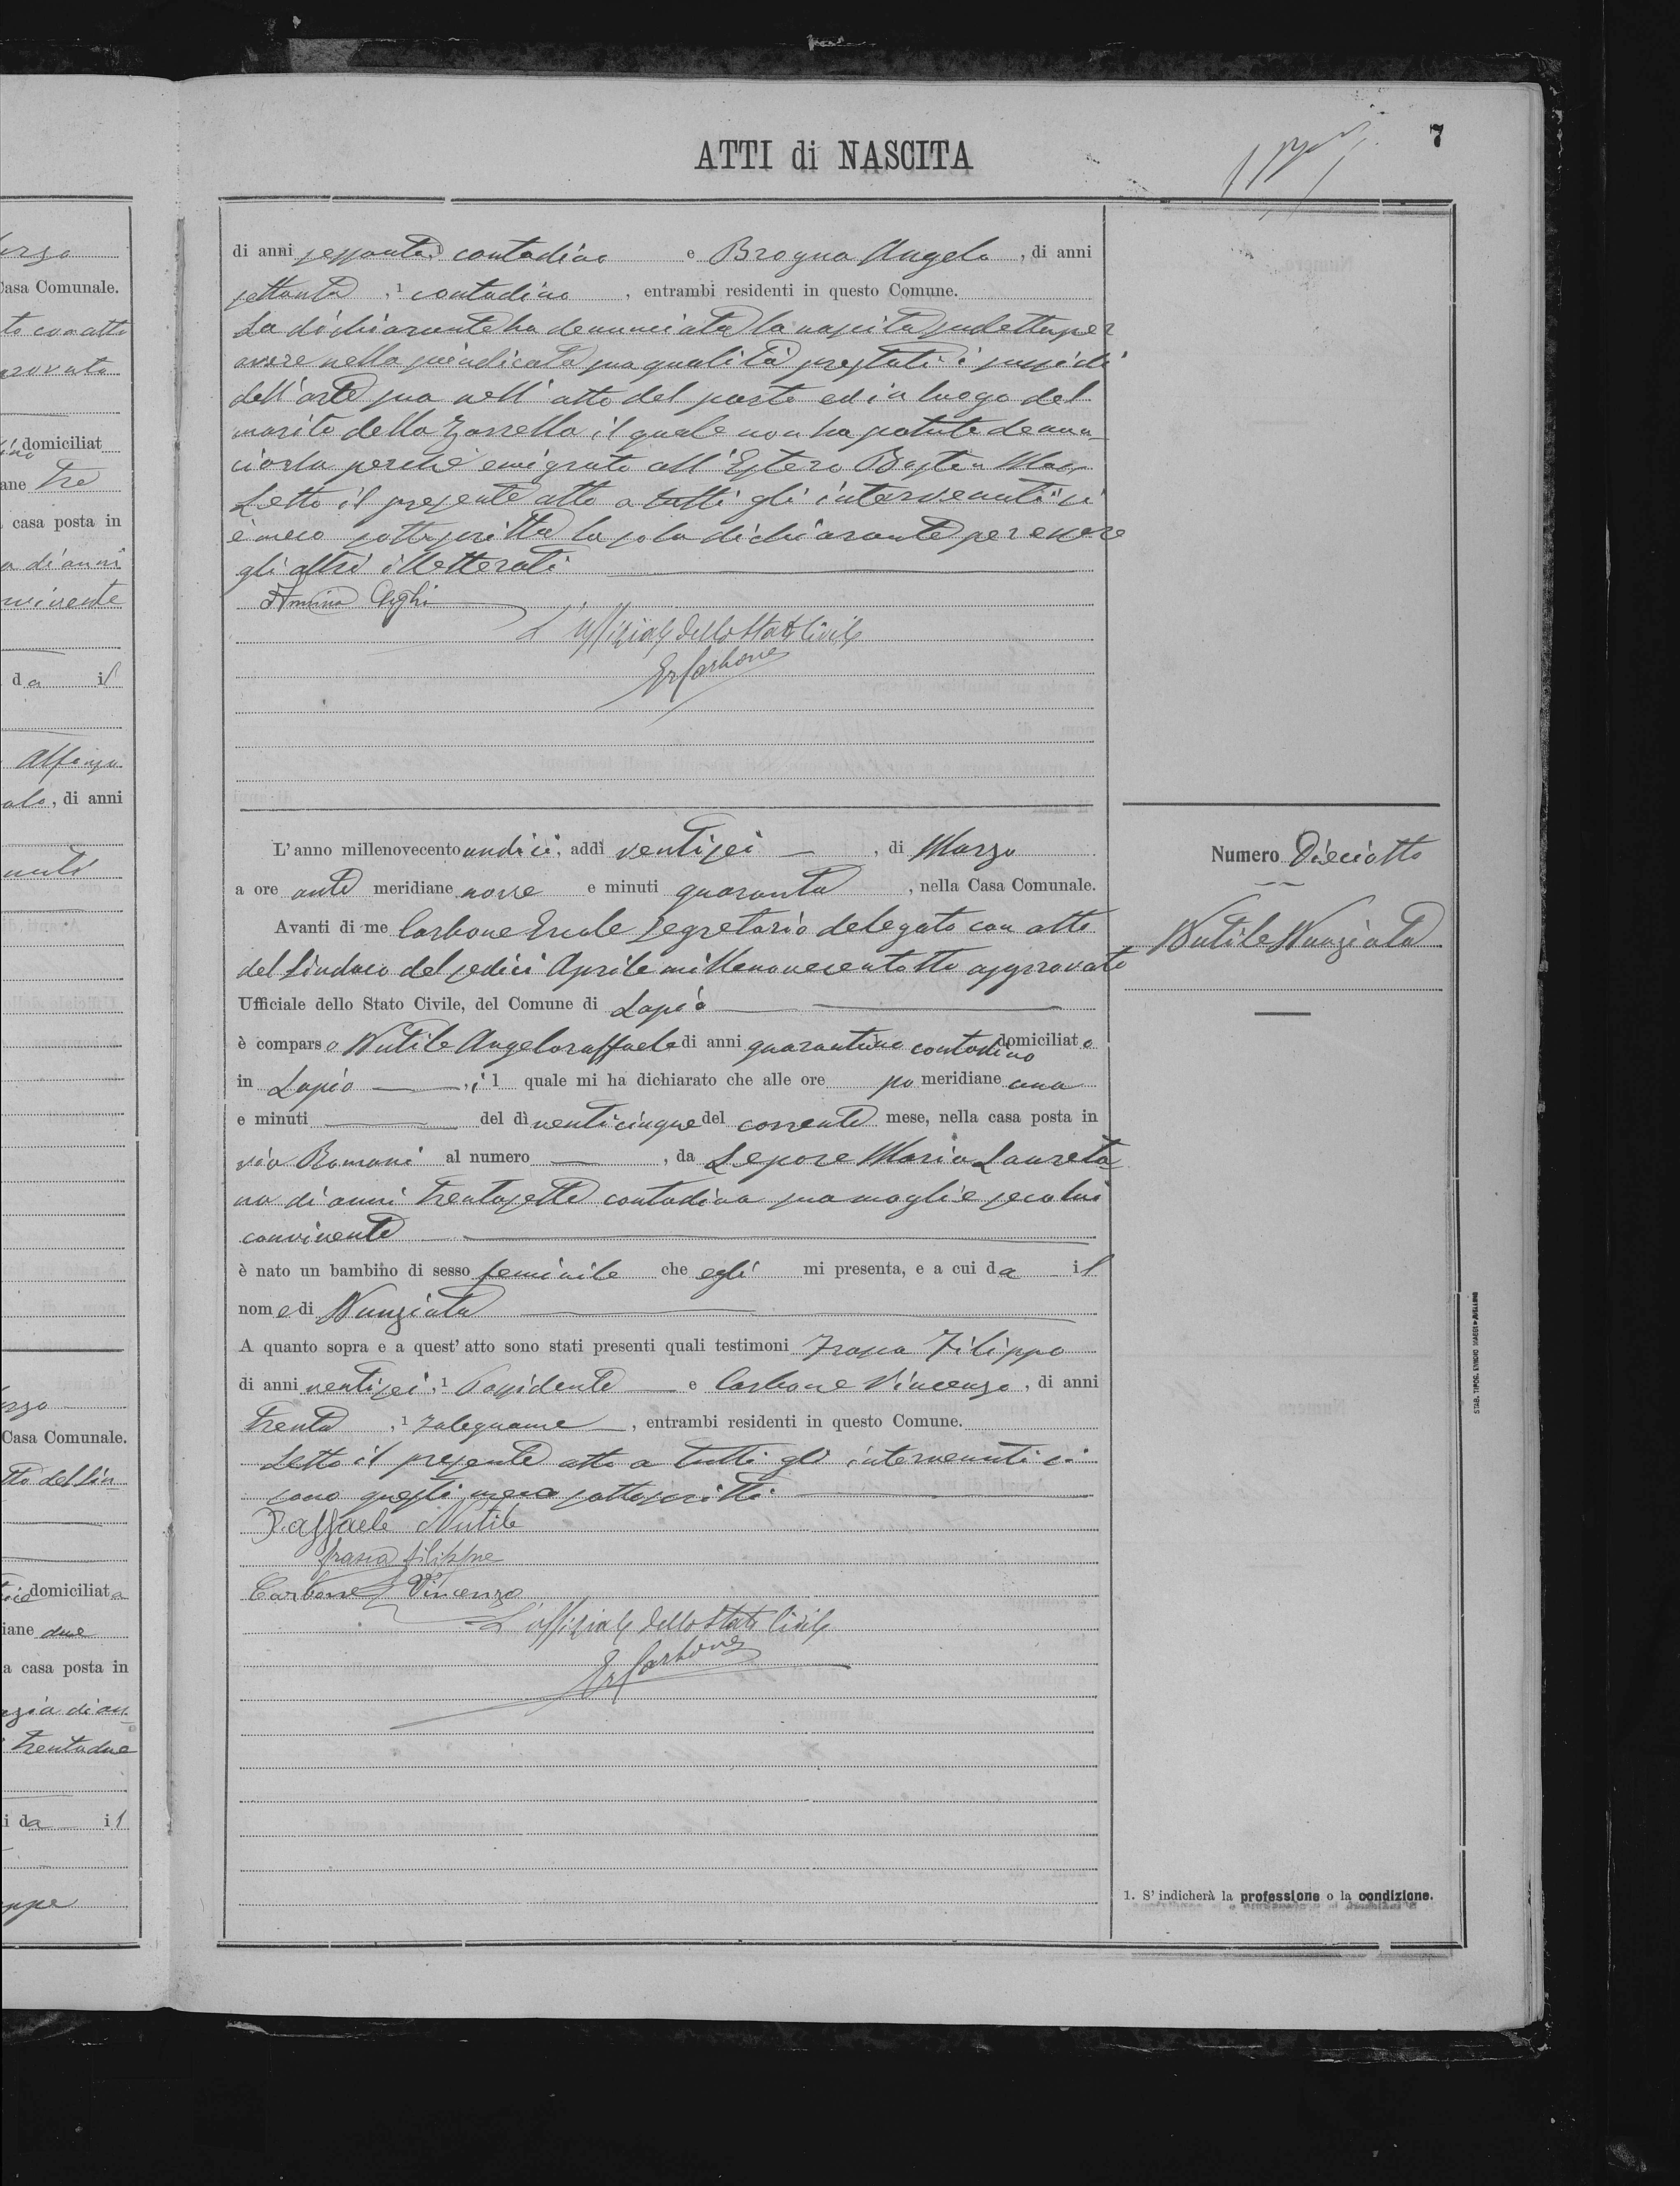 7
ATTI di NASCITA
di anni sessanta, 1 contadino e Brogna Angelo, di anni
settanta, 1 contadino, entrambi residenti in questo Comune.
La dichiarante ha denunciato la nascita sudetta per
avere nella preindicata sua qualità prestati i sussidi
dell'arte sua nell'atto del parto ed in luogo del
marito della Zarrella il quale non ha potuto denun-
ciarla perchè emigrato all'Estero Boston Mass
Letto il presente atto a tutti gli intervenuti si
è meco sottoscritta la sola dichiarante per essere
gli altri illetterati
Arghi
L'uffiziale dello Stato Civile
Er Carbone
L'anno millenovecento undici, addì ventisei, di Marzo
a ore ante meridiane nove e minuti quaranta, nella Casa Comunale.
Avanti di me Carbone Ercole Segretario delegato con atto
del Sindaco del sedici Aprile millenovecentotto approvato
Ufficiale dello Stato Civile, del Comune di Lapio
è comparso Nutile Angeloraffaele di anni quarantuno contadino domiciliato
in Lapio, il quale mi ha dichiarato che alle ore po meridiane una
e minuti del dì venticinque del corrente mese, nella casa posta in
via Romani al numero, da Lepore Maria Laureta
na di anni trentasette contadina sua moglie seco lui
convivente
è nato un bambino di sesso feminile che egli mi presenta, e a cui da il
nome di Nunziata
A quanto sopra e a quest'atto sono stati presenti quali testimoni Frasca Filippo
di anni ventisei, 1 Possidente e Carbone Vincenzo, di anni
trenta, 1 Falegname, entrambi residenti in questo Comune.
Letto il presente atto a tutti gli intervenuti si
sono questi meco sottoscritti
Raffaele Nutile
Frasca Filippo
Carbone Vincenzo
L'uffiziale dello Stato Civile
Er Carbone
Numero Dieciotto
Nutile Nunziata
1. S'indicherà la professione o la condizione.
Casa Comunale.
domiciliat
tre
casa posta in
di anni
da il
Alfonso
di anni
Casa Comunale.
domiciliata
due
casa posta in
trentadue
da il